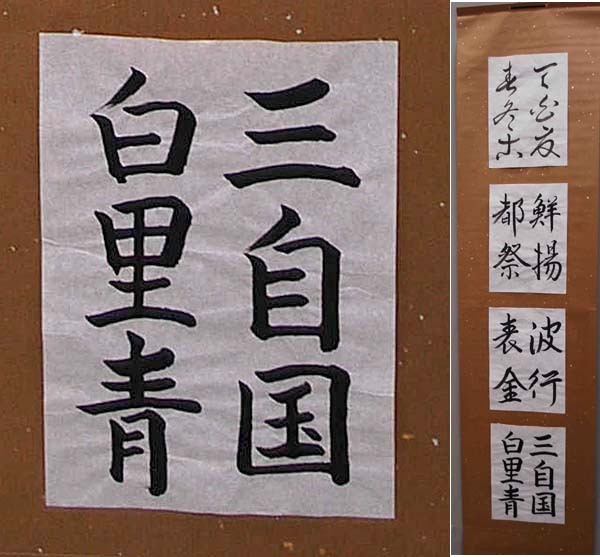 三自国
白里青
鮮揚
都祭
波行
表金
三自国
白里青